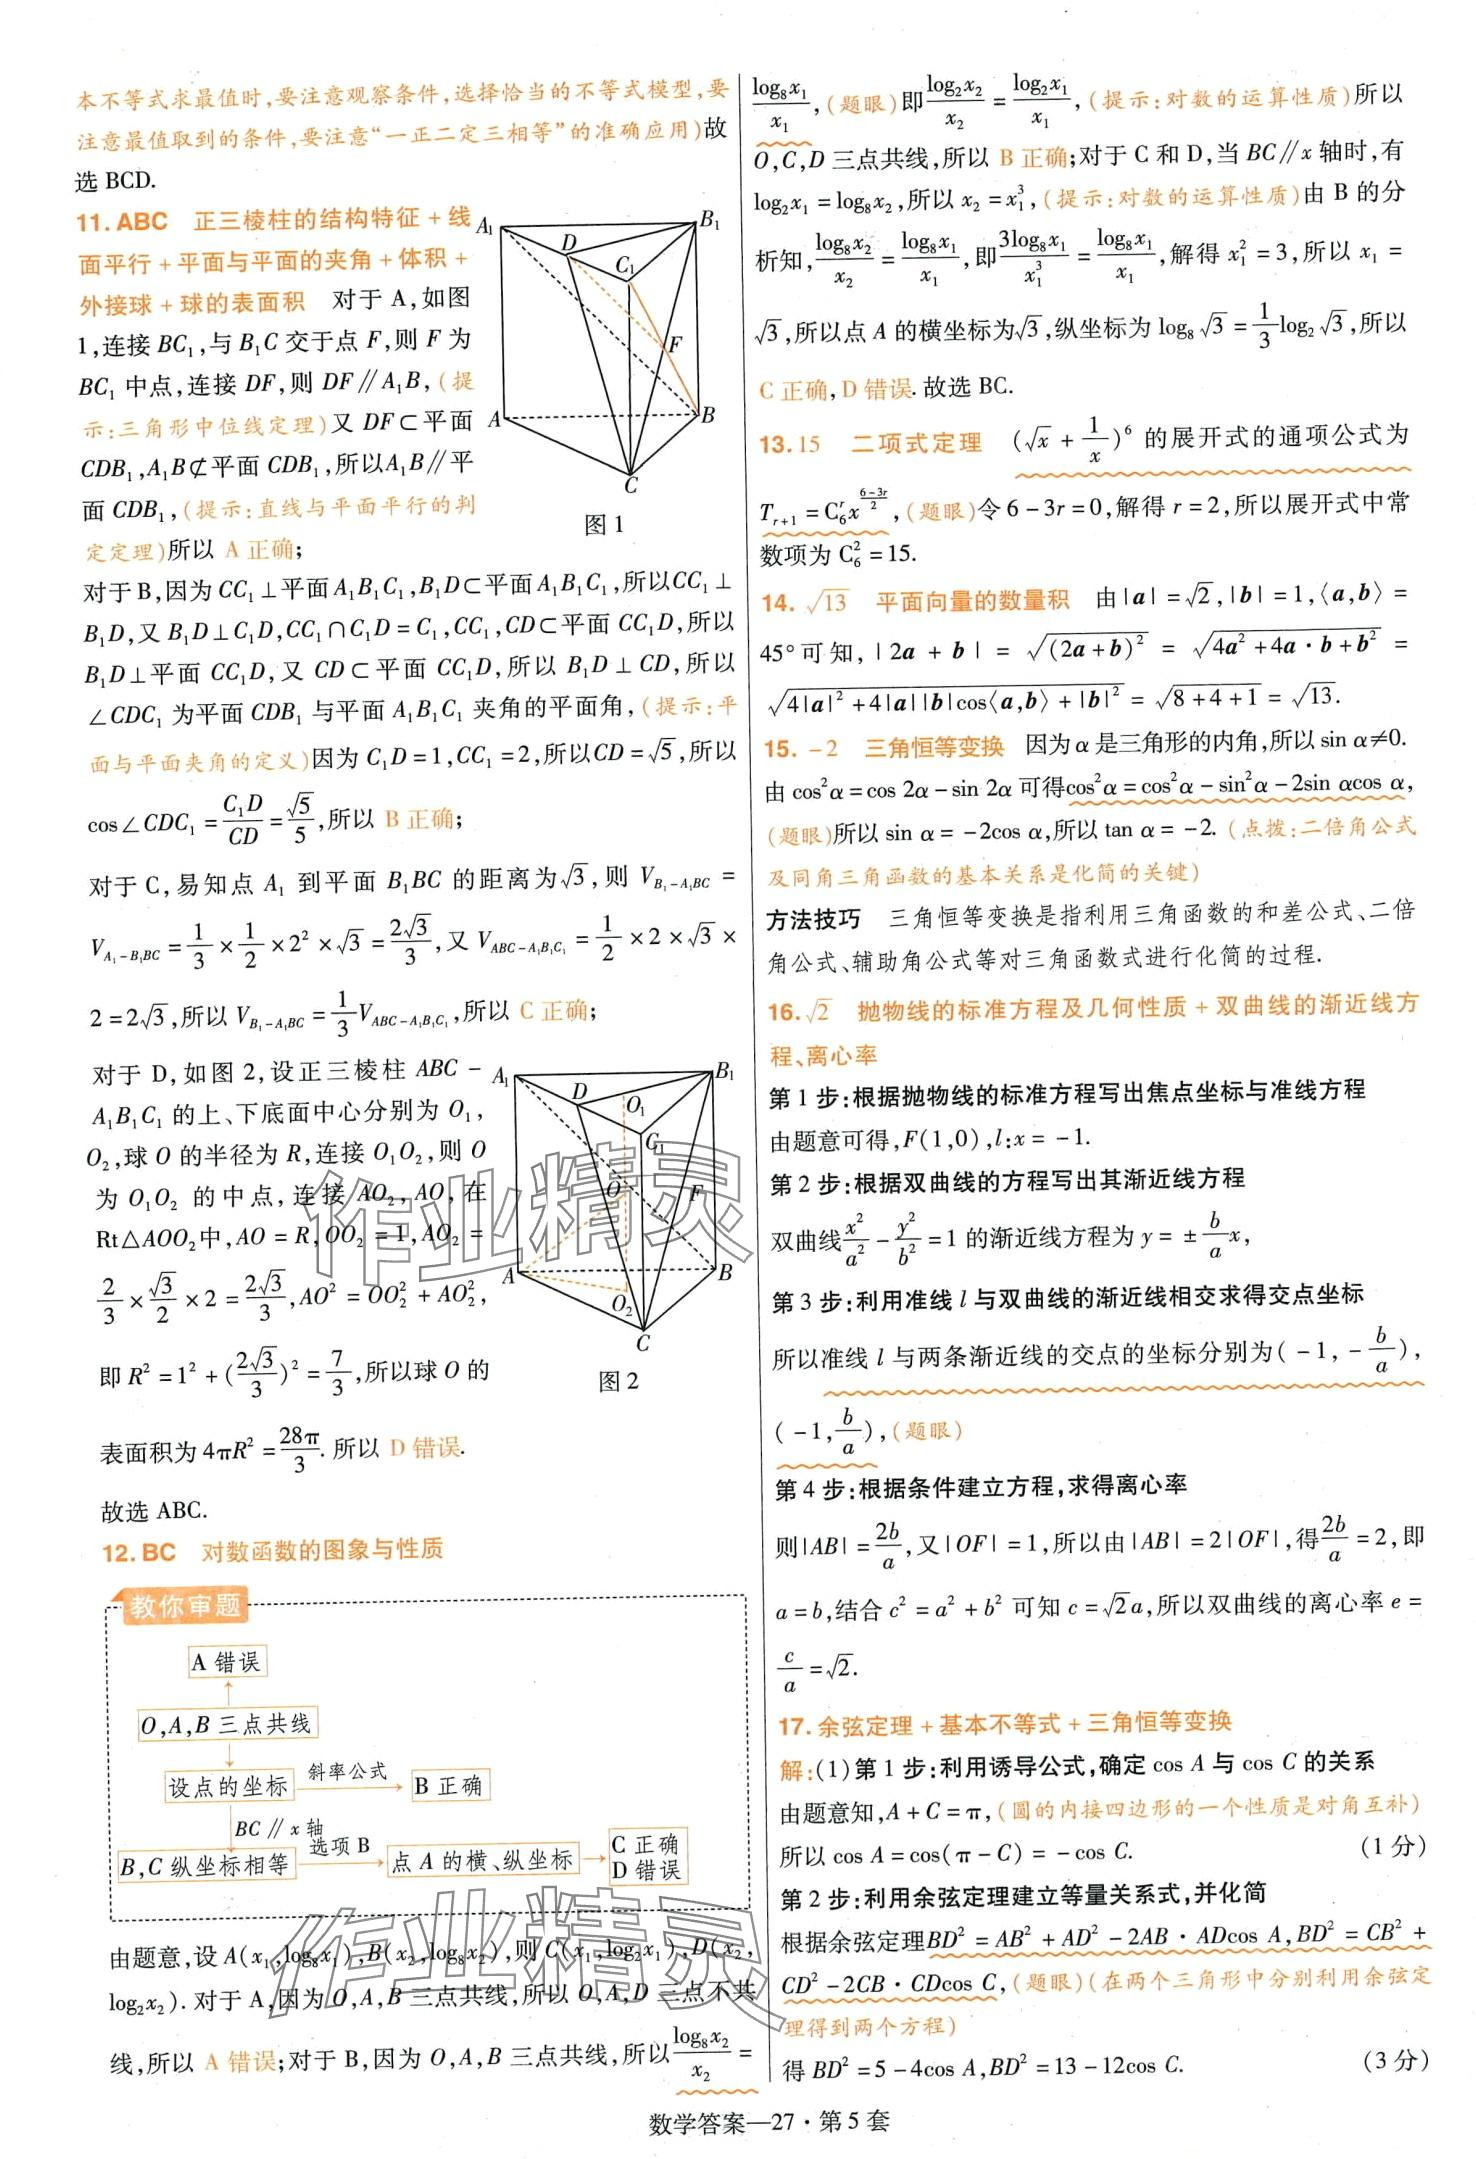 本不等式求最值时,要注意观察条件,选择恰当的不等式模型,要
注意最值取到的条件,要注意“一正二定三相等”的准确应用)故
选 BCD.
11. ABC 正三棱柱的结构特征 + 线
面平行 + 平面与平面的夹角 + 体积 +
外接球 + 球的表面积 对于 A,如图
1,连接 BC₁,与 B₁C 交于点 F,则 F 为
BC₁ 中点,连接 DF,则 DF∥A₁B,(提
示:三角形中位线定理)又 DF⊂平面
CDB₁,A₁B⊄平面 CDB₁,所以A₁B∥平
面 CDB₁,(提示:直线与平面平行的判
定定理)所以 A 正确;
A₁ B₁ D C₁ F A B C
图 1
对于 B,因为 CC₁⊥平面 A₁B₁C₁,B₁D⊂平面 A₁B₁C₁,所以CC₁⊥
B₁D,又 B₁D⊥C₁D,CC₁∩C₁D=C₁,CC₁,CD⊂平面 CC₁D,所以
B₁D⊥平面 CC₁D,又 CD⊂平面 CC₁D,所以 B₁D⊥CD,所以
∠CDC₁ 为平面 CDB₁ 与平面 A₁B₁C₁ 夹角的平面角,(提示:平
面与平面夹角的定义)因为 C₁D=1,CC₁=2,所以CD=√5,所以
cos∠CDC₁ = C₁D/CD = √5/5,所以 B 正确;
对于 C,易知点 A₁ 到平面 B₁BC 的距离为√3,则 V_{B₁-A₁BC} =
V_{A₁-B₁BC} = 1/3 × 1/2 × 2² × √3 = 2√3/3,又 V_{ABC-A₁B₁C₁} = 1/2 × 2 × √3 ×
2 = 2√3,所以 V_{B₁-A₁BC} = 1/3 V_{ABC-A₁B₁C₁},所以 C 正确;
对于 D,如图 2,设正三棱柱 ABC -
A₁B₁C₁ 的上、下底面中心分别为 O₁,
O₂,球 O 的半径为 R,连接 O₁O₂,则 O
为 O₁O₂ 的中点,连接 AO₂,AO,在
Rt△AOO₂中,AO = R,OO₂ = 1,AO₂ =
2/3 × √3/2 × 2 = 2√3/3,AO² = OO₂² + AO₂²,
即 R² = 1² + (2√3/3)² = 7/3,所以球 O 的
表面积为 4πR² = 28π/3. 所以 D 错误.
A₁ B₁ D O₁ C₁ O F A B O₂ C
图 2
故选 ABC.
12. BC 对数函数的图象与性质
教你审题
A 错误
O,A,B 三点共线
设点的坐标 斜率公式 B 正确
BC∥x 轴
B,C 纵坐标相等 选项 B 点 A 的横、纵坐标 C 正确
D 错误
由题意,设 A(x₁,log₈x₁),B(x₂,log₈x₂),则 C(x₁,log₂x₁),D(x₂,
log₂x₂). 对于 A,因为 O,A,B 三点共线,所以 O,A,D 三点不共
线,所以 A 错误;对于 B,因为 O,A,B 三点共线,所以 log₈x₂/x₂ =
log₈x₁/x₁,(题眼)即 log₂x₂/x₂ = log₂x₁/x₁,(提示:对数的运算性质)所以
O,C,D 三点共线,所以 B 正确;对于 C 和 D,当 BC∥x 轴时,有
log₂x₁ = log₈x₂,所以 x₂ = x₁³,(提示:对数的运算性质)由 B 的分
析知, log₈x₂/x₂ = log₈x₁/x₁,即 3log₈x₁/x₁³ = log₈x₁/x₁,解得 x₁² = 3,所以 x₁ =
√3,所以点 A 的横坐标为√3,纵坐标为 log₈√3 = 1/3 log₂√3,所以
C 正确,D 错误. 故选 BC.
13. 15 二项式定理 (√x + 1/x)⁶ 的展开式的通项公式为
T_{r+1} = C₆^r x^{(6-3r)/2},(题眼)令 6 - 3r = 0,解得 r = 2,所以展开式中常
数项为 C₆² = 15.
14. √13 平面向量的数量积 由|a| = √2,|b| = 1,⟨a,b⟩ =
45°可知,|2a + b| = √((2a+b)²) = √(4a²+4a·b+b²) =
√(4|a|²+4|a||b|cos⟨a,b⟩+|b|²) = √(8+4+1) = √13.
15. -2 三角恒等变换 因为 α 是三角形的内角,所以 sin α≠0.
由 cos²α = cos 2α - sin 2α 可得cos²α = cos²α - sin²α - 2sin αcos α,
(题眼)所以 sin α = -2cos α,所以 tan α = -2. (点拨:二倍角公式
及同角三角函数的基本关系是化简的关键)
方法技巧 三角恒等变换是指利用三角函数的和差公式、二倍
角公式、辅助角公式等对三角函数式进行化简的过程.
16. √2 抛物线的标准方程及几何性质 + 双曲线的渐近线方
程、离心率
第 1 步:根据抛物线的标准方程写出焦点坐标与准线方程
由题意可得,F(1,0),l:x = -1.
第 2 步:根据双曲线的方程写出其渐近线方程
双曲线 x²/a² - y²/b² = 1 的渐近线方程为 y = ± b/a x,
第 3 步:利用准线 l 与双曲线的渐近线相交求得交点坐标
所以准线 l 与两条渐近线的交点的坐标分别为( -1, - b/a),
( -1, b/a),(题眼)
第 4 步:根据条件建立方程,求得离心率
则|AB| = 2b/a,又|OF| = 1,所以由|AB| = 2|OF|,得 2b/a = 2,即
a = b,结合 c² = a² + b² 可知 c = √2a,所以双曲线的离心率 e =
c/a = √2.
17. 余弦定理 + 基本不等式 + 三角恒等变换
解:(1)第 1 步:利用诱导公式,确定 cos A 与 cos C 的关系
由题意知,A + C = π,(圆的内接四边形的一个性质是对角互补)
所以 cos A = cos(π - C) = - cos C. (1 分)
第 2 步:利用余弦定理建立等量关系式,并化简
根据余弦定理BD² = AB² + AD² - 2AB·ADcos A,BD² = CB² +
CD² - 2CB·CDcos C,(题眼)(在两个三角形中分别利用余弦定
理得到两个方程)
得 BD² = 5 - 4cos A,BD² = 13 - 12cos C. (3 分)
作业精灵
作业精灵
数学答案—27·第 5 套